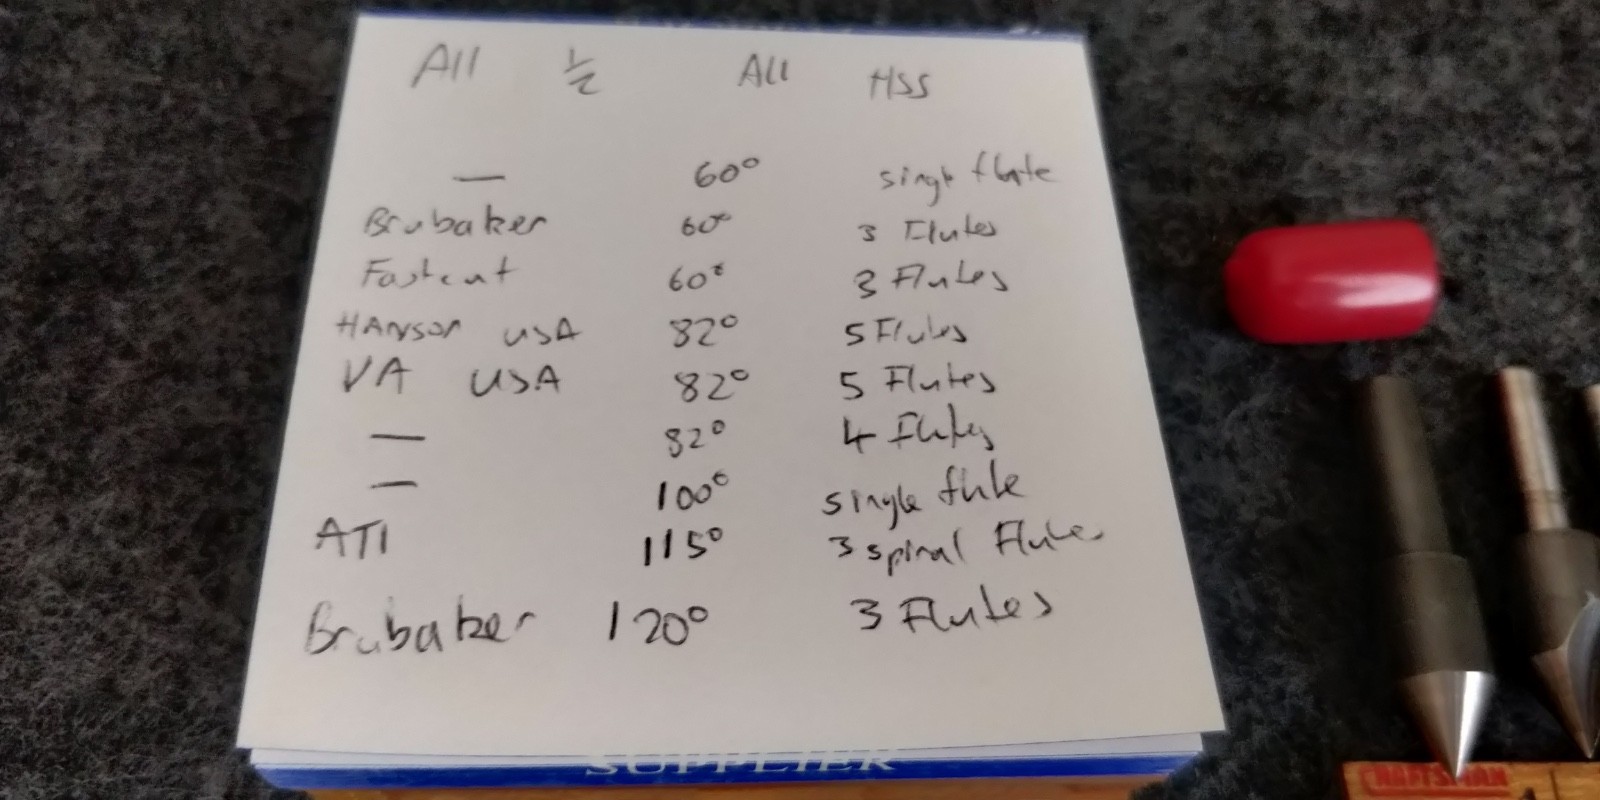 All 1/2 All HSS
— 60° single flute
Brubaker 60° 3 Flutes
Fastcut 60° 3 Flutes
HANSON USA 82° 5 Flutes
VA USA 82° 5 Flutes
— 82° 4 Flutes
— 100° single flute
ATI 115° 3 spiral Flutes
Brubaker 120° 3 Flutes
SUPPLIER
CRAFTSMAN